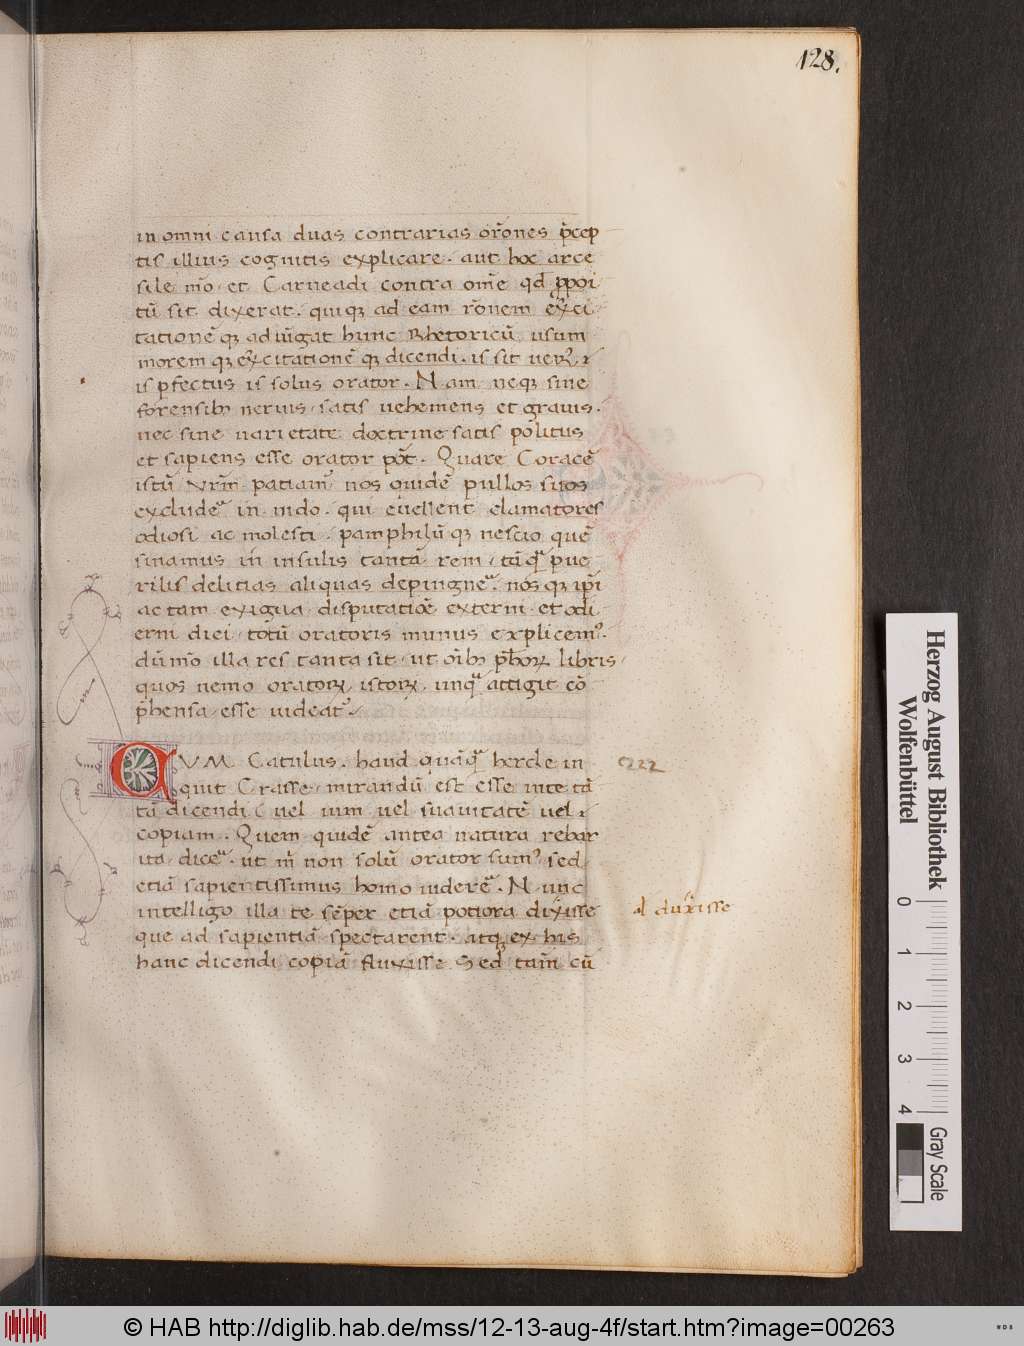 128.
in omni causa duas contrarias or̄ones p̄cep
tis illius cognitis explicare. aut hoc arce
sile mō. et Carneadi contra om̄e qd̄ ꝓpoi
tū sit dixerat. quiqꝫ ad eam rōnem exci
tationē qꝫ adiūgat hunc Rhetoricū usum
morem qꝫ exercitationē qꝫ dicendi. is sit uerꝰ. ⁊
is pfectus is solus orator. Nam neqꝫ sine
forensibꝫ neruis satis uehemens et grauis.
nec sine uarietate doctrine satis politus
et sapiens esse orator pōt. Quare Coracē
istū Nr̄m patiamꝰ nos quidē pullos suos
excludeᷓ in nido. qui euellent clamatores
odiosi ac molesti. pamphilū qꝫ nescio quē
sinamus in insulis tantā rem. tāqᷓ pue
rilis delitias aliquas depingneᷓ. nos qꝫ ip̄i
ac tam exigua disputatiōe externi et odi
erni diei totū oratoris munus explicemꝰ.
dū mō illa res tanta sit ut oībꝫ ph̄oꝝ libris
quos nemo oratoꝝ istoꝝ unqᷓ attigit cō
p̄hensa esse uideatꝰ.
CVM Catulus. haud quāqᷓ hercle in
quit Crasse mirandū est esse in te tā
tā dicendi uel uim uel suauitatē uel
copiam. Quem quidē antea natura rebar
ita diceᷓ. ut m̄ non solū orator sumꝰ sed
etiā sapientissimus homo uidereᷓ. Nunc
intelligo illa te sēper etiā potiora dixisse
que ad sapientiā spectarent. atqꝫ ex his
hanc dicendi copiā fluxisse Sed tam̄ cū
al duxisse
Herzog August Bibliothek
Wolfenbüttel
0 1 2 3 4
Gray Scale
© HAB http://diglib.hab.de/mss/12-13-aug-4f/start.htm?image=00263